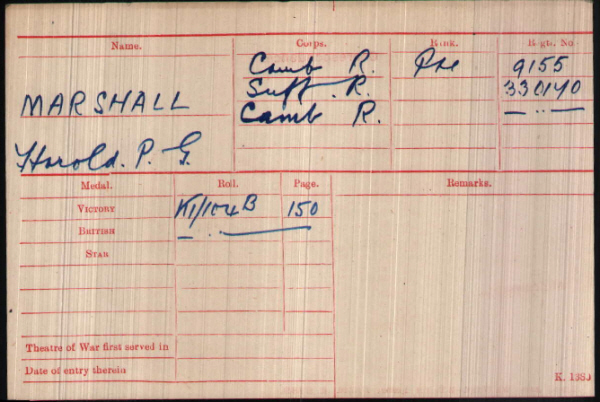 Name. Corps. Rank. Regtl. No
Camb R. Pte 9155
MARSHALL Suff. R. 330140
Camb R. — " —
Harold. P. G.
Medal. Roll. Page. Remarks.
VICTORY K1/104B 150
BRITISH — " —
STAR
Theatre of War first served in
Date of entry therein
K. 1380